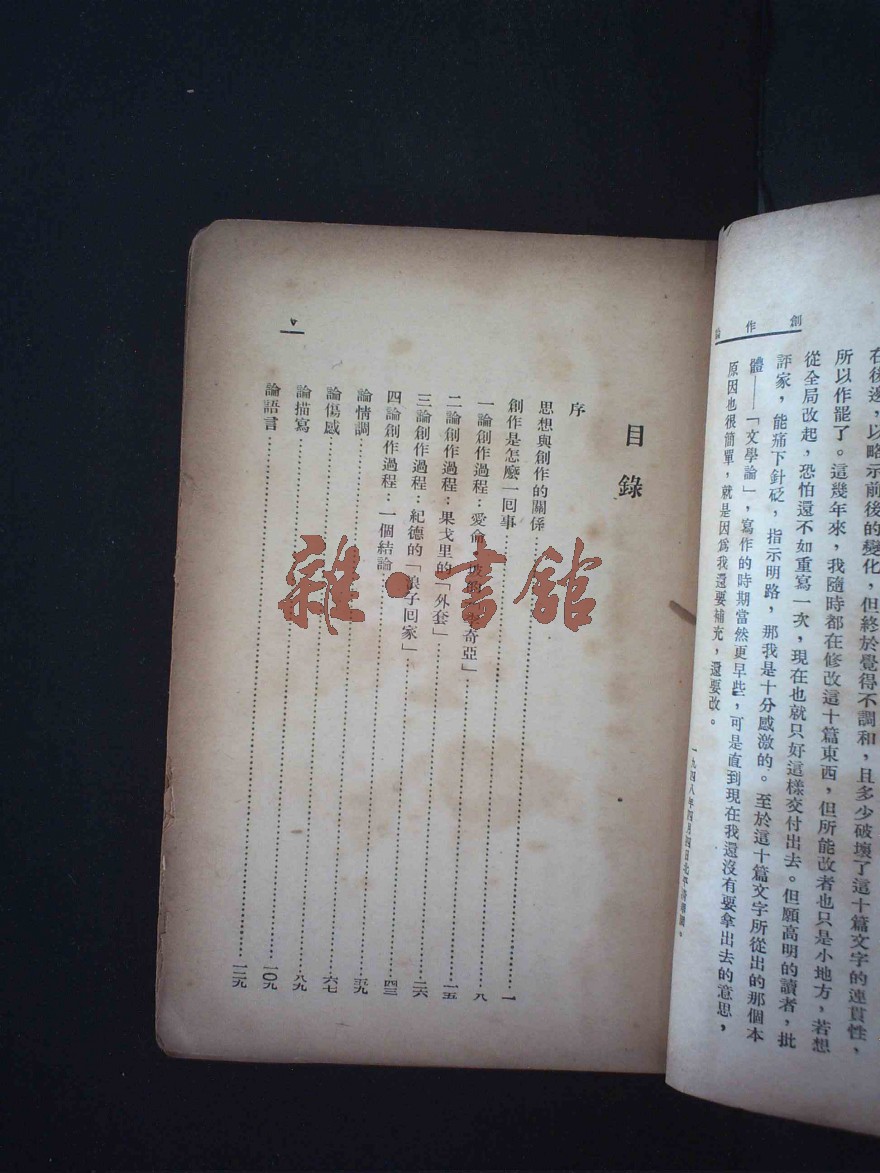 創作論
在後邊，以略示前後的變化，但終於覺得不調和，且多少破壞了這十篇文字的連貫性，
所以作罷了。這幾年來，我隨時都在修改這十篇東西，但所能改者也只是小地方，若想
從全局改起，恐怕還不如重寫一次，現在也就只好這樣交付出去。但願高明的讀者，批
評家，能痛下針砭，指示明路，那我是十分感激的。至於這十篇文字所從出的那個本
體——「文學論」，寫作的時期當然更早些，可是直到現在我還沒有要拿出去的意思，
原因也很簡單，就是因爲我還要補充，還要改。
一九四八年四月四日北平
目錄
序
思想與創作的關係……一
創作是怎麼一回事……八
一論創作過程：愛侖坡的「李奇亞」……一五
二論創作過程：果戈里的「外套」……二六
三論創作過程：紀德的「浪子回家」……四三
四論創作過程：一個結論……五九
論情調……六七
論傷感……八九
論描寫……一〇九
論語言……一二九
雜·書館